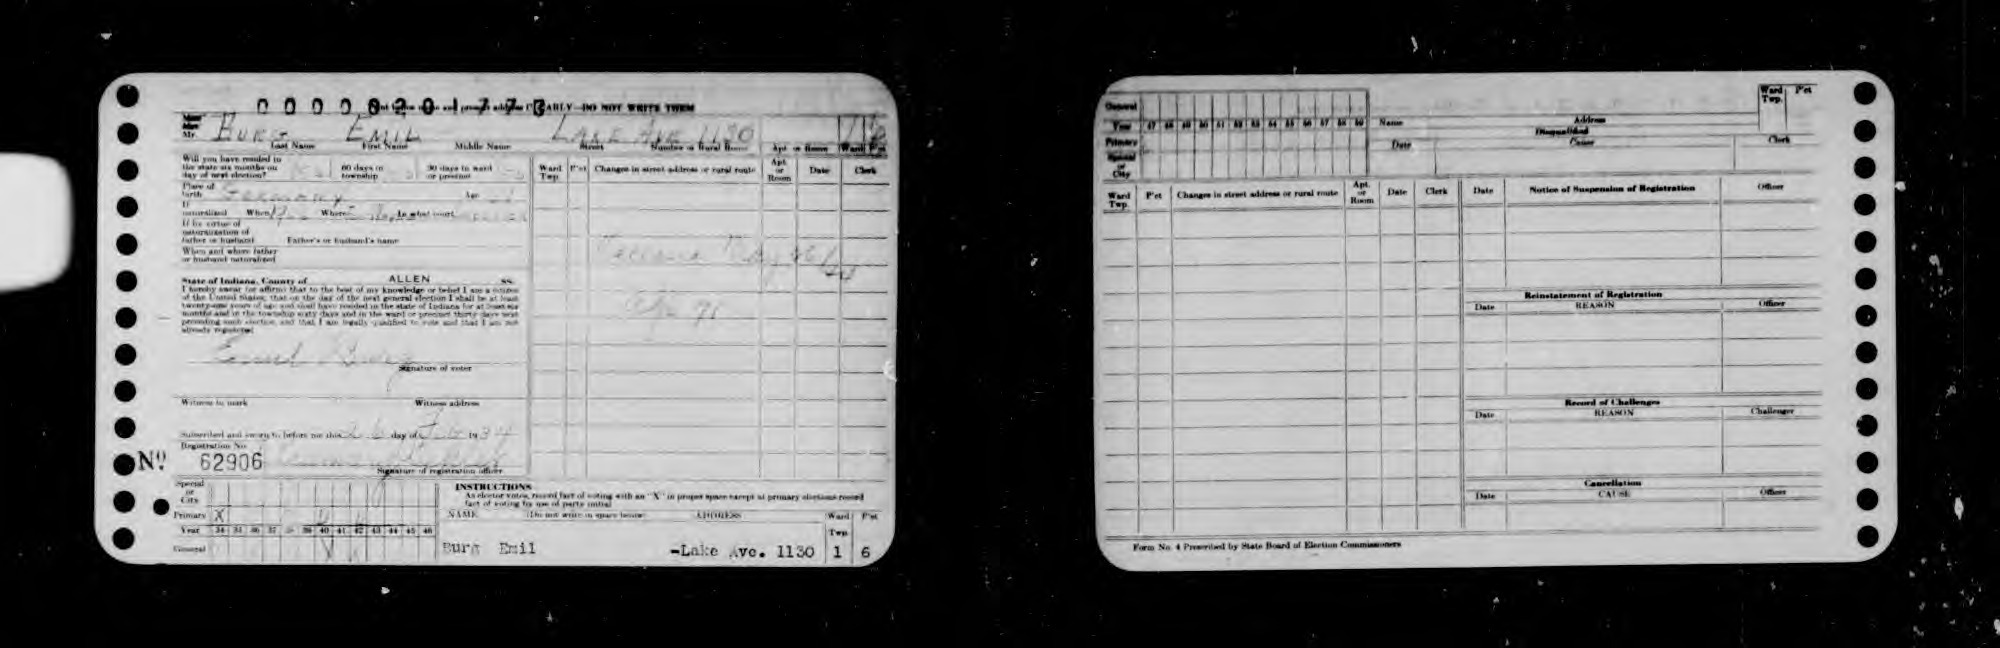 0 0 0 0 8 2 0 1 7 7 8
EARLY—DO NOT WRITE THEM
Mr. BURG EMIL LAKE AVE 1130 1 6
Last Name First Name Middle Name Street Number or Rural Route Apt. or Room Ward Pct
Will you have resided in
the state six months on
day of next election?
60 days in
township
30 days in ward
or precinct
Place of
birth Germany Age
If
naturalized When Where In what court
If by virtue of
naturalization of
father or husband Father's or husband's name
When and where father
or husband naturalized
State of Indiana, County of ALLEN ss.
I hereby swear (or affirm) that to the best of my knowledge or belief I am a citizen
of the United States; that on the day of the next general election I shall be at least
twenty-one years of age and shall have resided in the state of Indiana for at least six
months and in the township sixty days and in the ward or precinct thirty days next
preceding such election, and that I am legally qualified to vote and that I am not
already registered
Emil Burg
Signature of voter
Witness to mark Witness address
Subscribed and sworn to before me this 26 day of Feb 1934
Registration No.
No. 62906
Signature of registration officer
Ward
Twp. P'ct Changes in street address or rural route Apt.
or
Room Date Clerk
Age 71
Special
or
City
Primary X
Year 34 35 36 37 38 39 40 41 42 43 44 45 46
General
INSTRUCTIONS
As elector votes, record fact of voting with an "X" in proper space except at primary elections record
fact of voting by use of party initial
NAME (Do not write in space below) ADDRESS Ward
Twp. P'ct
Burg Emil -Lake Ave. 1130 1 6
General
Year 47 48 49 50 51 52 53 54 55 56 57 58 59
Primary
Special
or
City
Name Address
Disqualified
Date Cause Clerk
Ward
Twp. P'ct
Ward
Twp. P'ct Changes in street address or rural route Apt.
or
Room Date Clerk
Date Notice of Suspension of Registration Officer
Reinstatement of Registration
Date REASON Officer
Record of Challenges
Date REASON Challenger
Cancellation
Date CAUSE Officer
Form No. 4 Prescribed by State Board of Election Commissioners